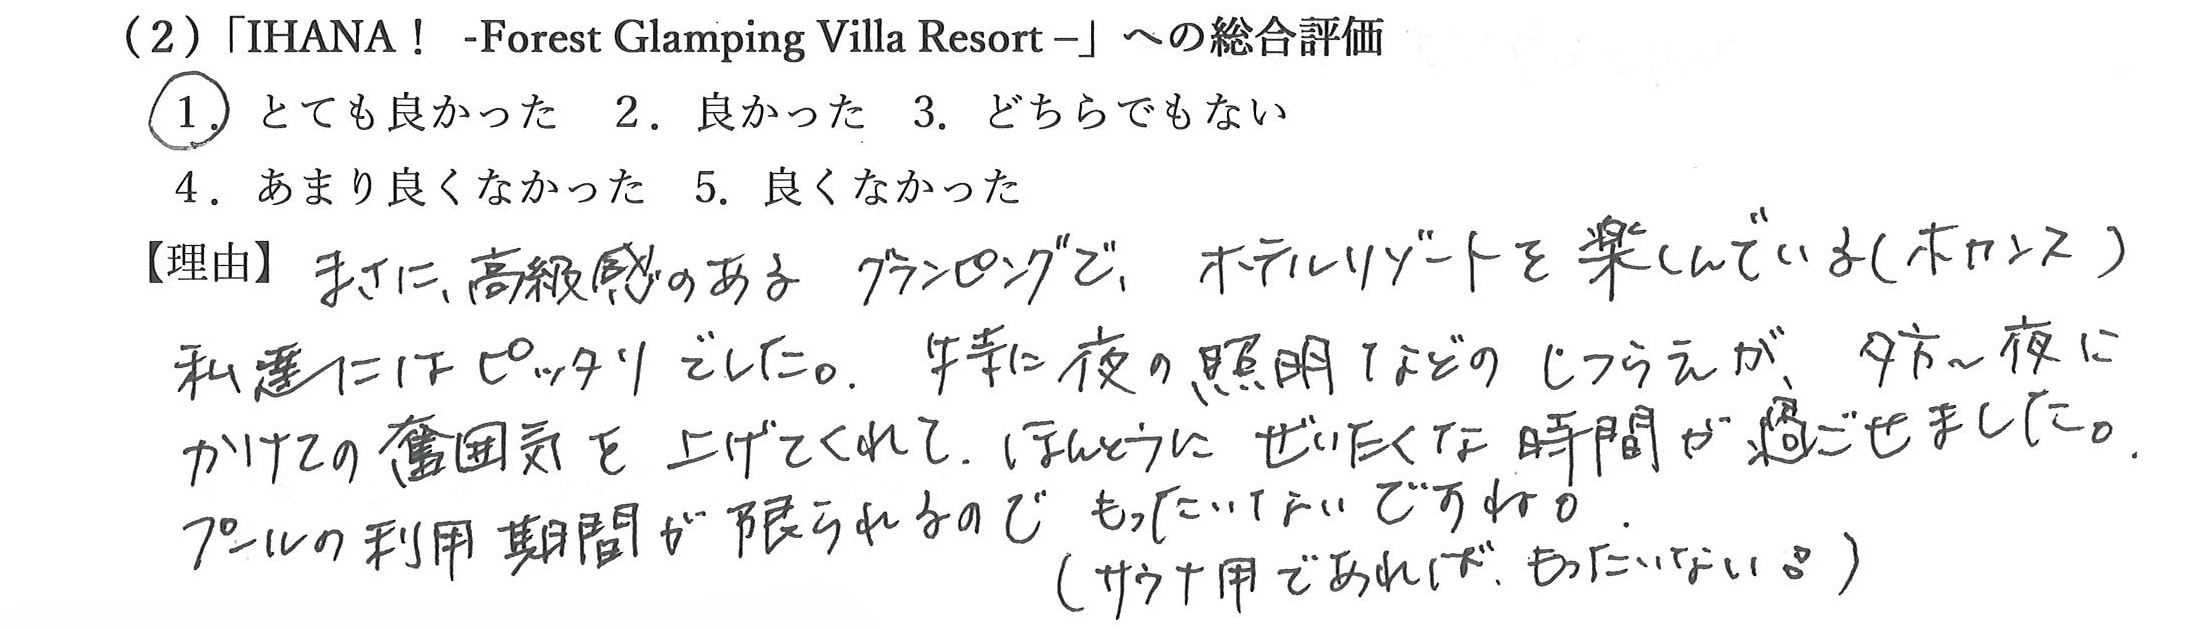 (2)「IHANA！ -Forest Glamping Villa Resort –」への総合評価
1. とても良かった 2. 良かった 3. どちらでもない
4. あまり良くなかった 5. 良くなかった
【理由】まさに、高級感のある グランピングで、ホテルリゾートを楽しんでいる(ホカンス)
私達にはピッタリでした。特に夜の照明などのしつらえが、夕方～夜に
かけての奮囲気を上げてくれて、ほんとうにぜいたくな時間が過ごせました。
プールの利用期間が限られるのでもったいないですね。
(サウナ用であれば、もったいない。)